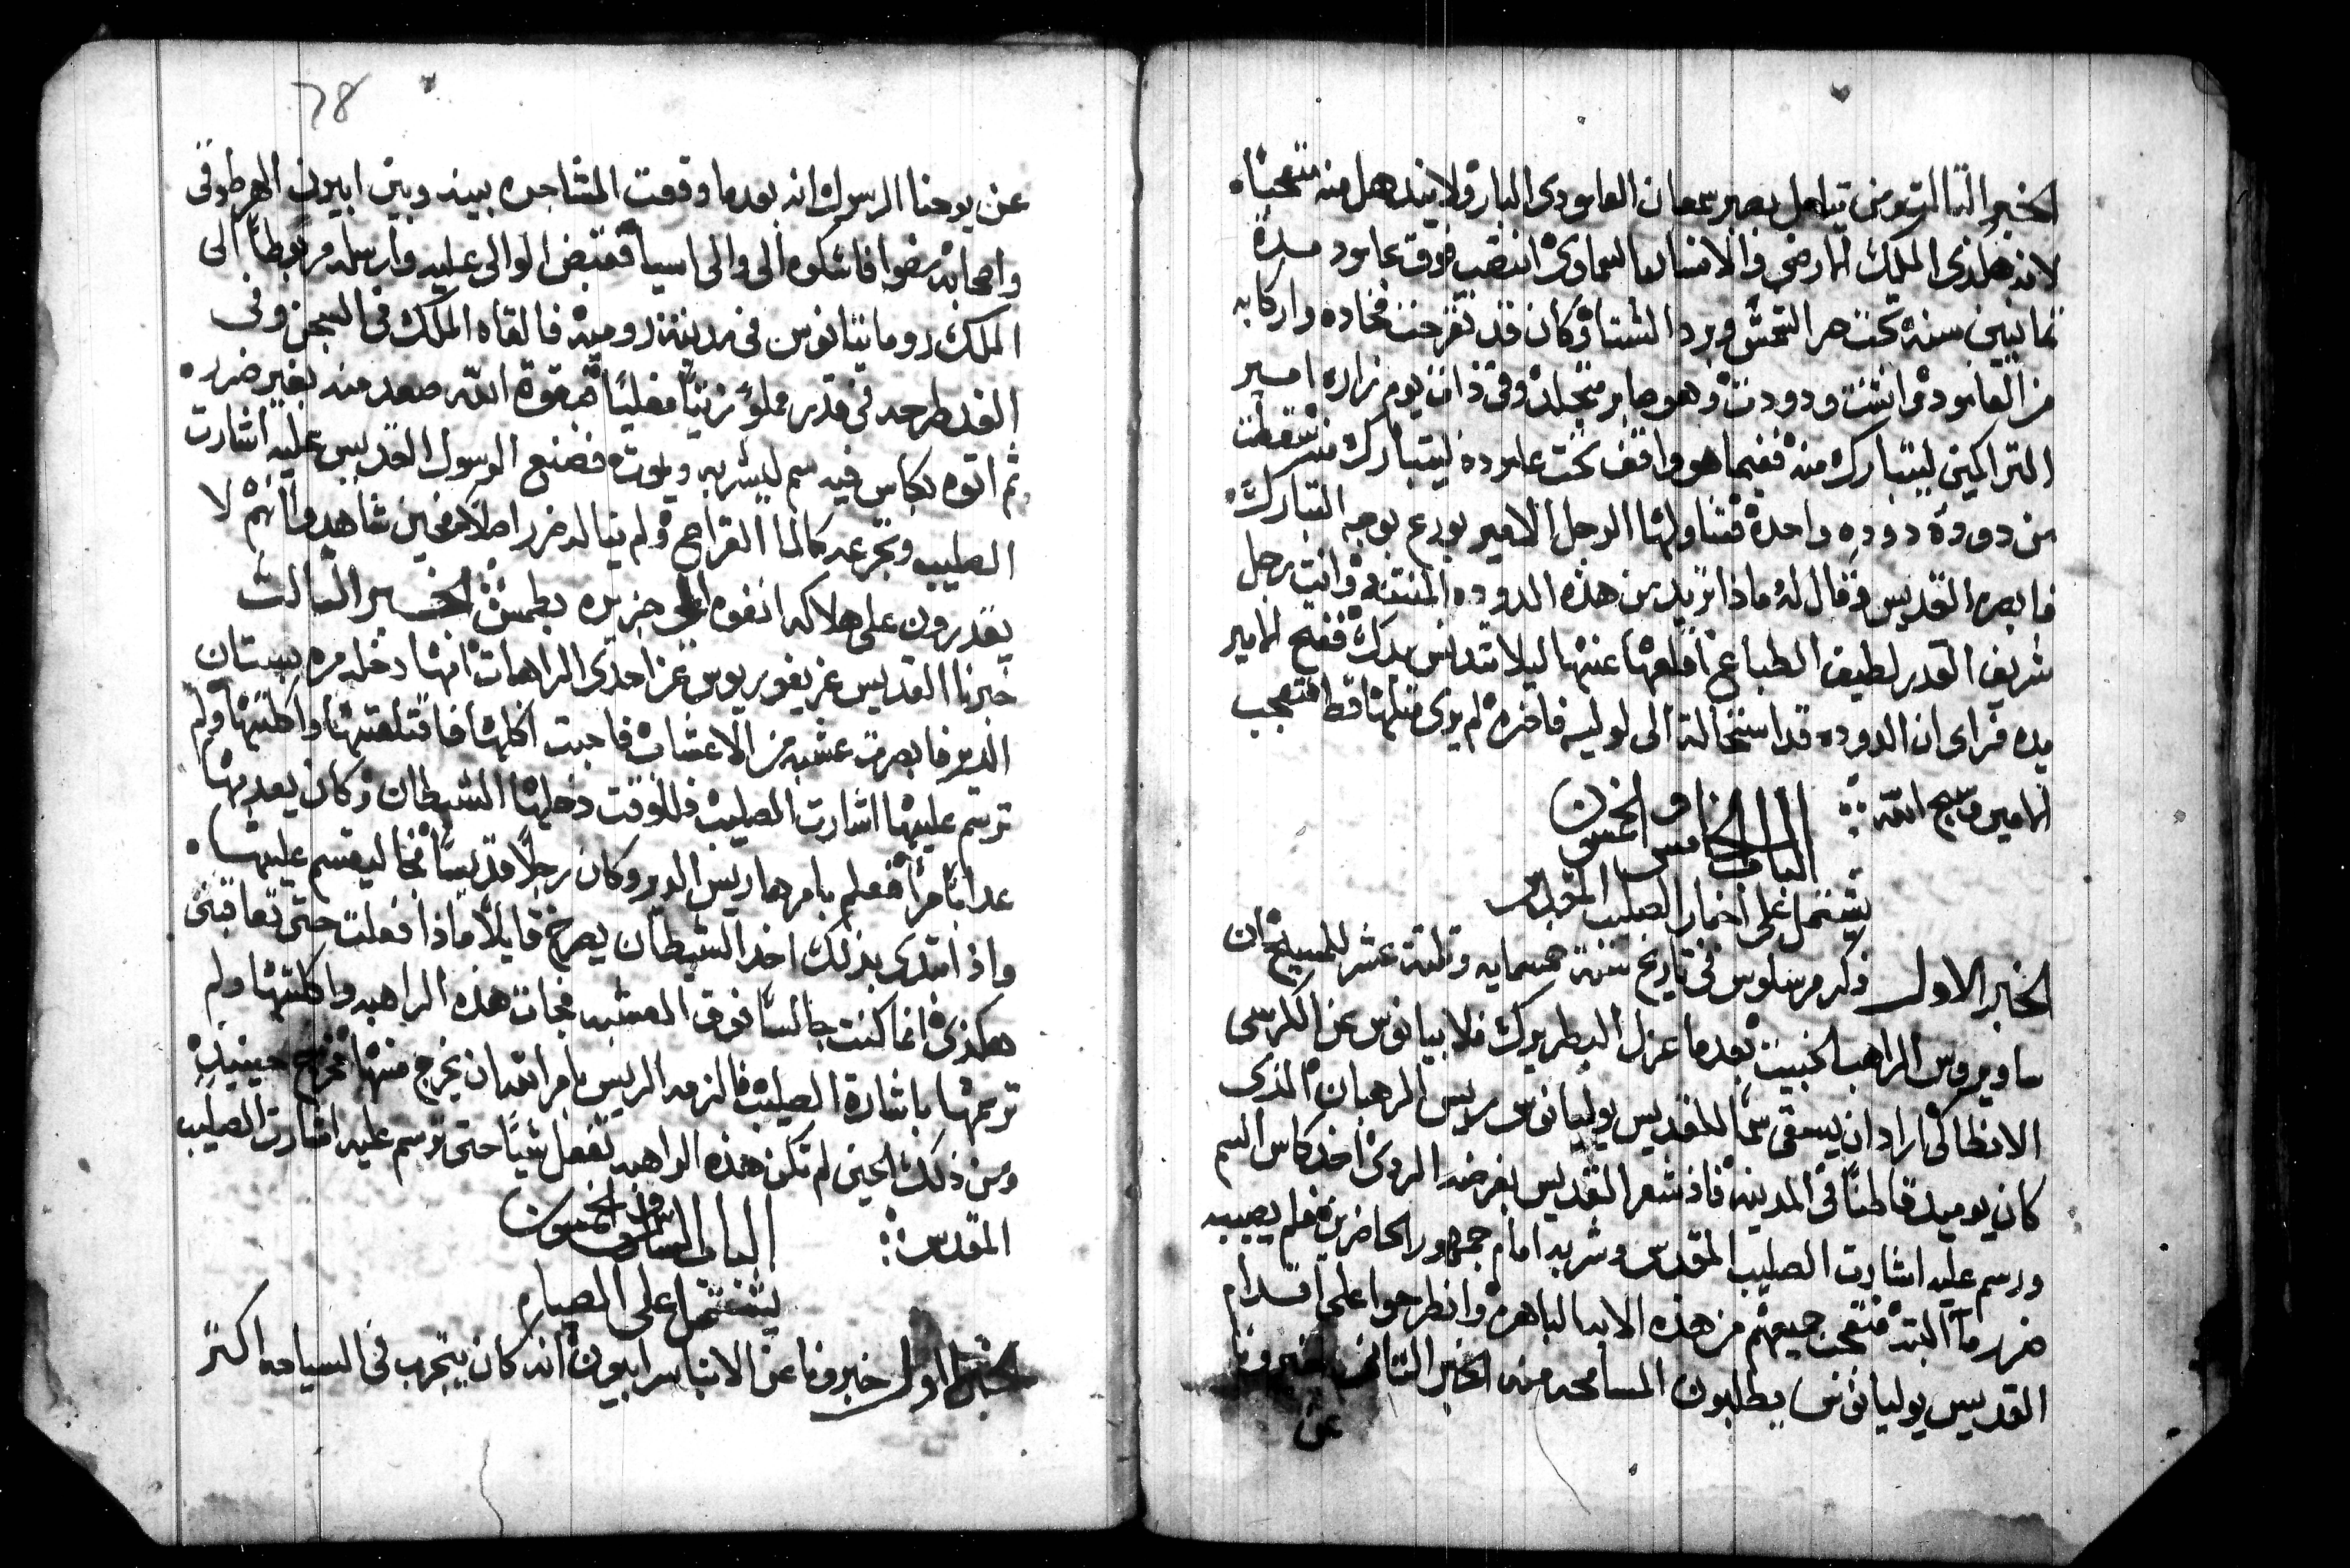 الخبر التالت ومن تيامل بصبر سمعان العامودي البار ولا يندهل منه متعجباً
لانه هكذي الملاك الارضي والانسان السماوي انتصب فوق عامود مدة
تمانيين سنة تحت حر الشمس وبرد الشتا وكان قد تقرحت فخاده واركابه
من العامودي انتنت ودودت وهو صابر متجلد وفي ذات يوم زاره امير
التراكمين ليتبارك منه ففيما هو واقف تحت عاموده ليتبارك منه سقطت
من دوده دوده واحدة فتناولها الرجل الامير بورع بوجه التبارك
فابصره القديس فقال له ماذا تريد من هذه الدوده المنتنه وانت رجل
شريف القدر لطيف الطباع اقلعها عنها ليلا تتدنس يدك ففتح الامير
يده فراى ان الدوده قد استحالة الى لوليه فاخره لم يرى متلها قط فتعجب
الامير وسبح الله
الباب الخامس والخمسون
يشتمل على اخبار الصليب المقدس
الخبر الاول ذكر مرسلوس في تاريخ سنة خمسمايه وتلته عشر للمسيح ان
ساويروس الراهب الخبيت بعدما عزل البطريرك فلابيانوس عن الكرسي
الانطاكي اراد ان يسقي سما للقديس يوليانوس ريس الرهبان الذي
كان يوميد قاطنا في المدينة فاذ شعر القديس بغرضه الردي اخد كاس السم
ورسم عليه اشارت الصليب المقدس وشربه امام جمهور الحاضرين فلم يصيبه
ضرر ما البته فتعجب جميعهم من هذه الايه الباهرة وانطرحوا على اقدام
القديس يوليانوس يطلبون المسامحه منه الخبر التاني خبرونا
عن
78
عن يوحنا الرسول انه بعدما وقعت المشاجره بينه وبين ابيرون الهرطوقي
واصحابه مضوا فاشكوه الى والى اسيا فقبض الوالى عليه وارسله مربوطا الى
الملك دوماتيانوس في مدينة رومية فالقاه الملك في السجن وفي
الغد طرحه في قدر مملو زيتا مغليا فبقوة الله صعد منه بغير ضرر
ثم اتوه بكاس فيه سم ليشربه ويموت فصنع الرسول القديس عليه اشارت
الصليب وتجرعه كالما القراح ولم يناله ضررا اصلا فحين شاهدوا انهم لا
يقدرون على هلاكه انفوه الى جزيره بطمش الخبر التالت
خبرنا القديس غريغوريوس عن احدى الراهبات انها دخله مره بستان
الدير فابصرت عشبه من الاعشاب فاحبت اكلها فاقتلعتها واكلتها ولم
ترسم عليها اشارت الصليب فللوقت دخلها الشيطان وكان يعدبها
عدابا مرا فعلم بامرها ريس الدير وكان رجلا قديسا فجا ليقسم عليها
واذ ابتدى بذلك اخد الشيطان يصرخ قايلا ماذا فعلت حتى تعاقبني
هكذي انما كنت جالسا فوق العشبه فجات هذه الراهبه واكلتها ولم
ترسمها باشارة الصليب فالزمه الريس بامر الله ان يخرج منها فخرج حينيد
ومن ذلك الحين لم تكن هذه الراهبه تفعل شيا حتى ترسم عليه اشارت الصليب
المقدس
الباب السادس والخمسون
يشتمل على الصيام
الخبر الاول خبرونا عن الانبا سرابيون انه كان يتجرب في السياحه اكتر